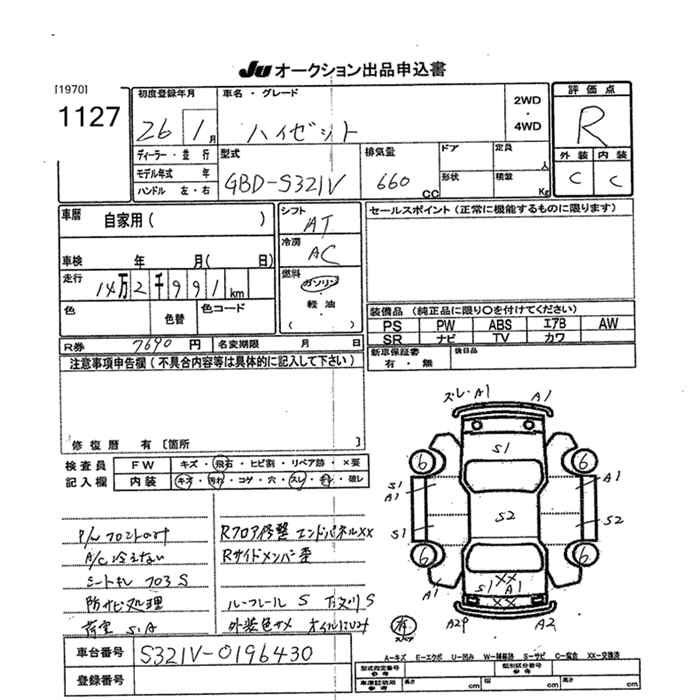 JU オークション出品申込書
[1970]
1127
初度登録年月
26 1月
車名・グレード
ハイゼット
2WD
・
4WD
評価点
R
外装 内装
C C
ディーラー・並行
モデル年式 年
ハンドル 左・右
型式
GBD-S321V
排気量
660 CC
ドア
形状
定員 人
積載 Kg
車歴 自家用( )
シフト
AT
冷房
AC
燃料
ガソリン
・
軽油
・
( )
セールスポイント(正常に機能するものに限ります)
車検 年 月( 日)
走行
14万2千991km
色 色替 色コード
装備品(純正品に限り○を付けてください)
PS PW ABS エアB AW
SR ナビ TV カワ
R券 7690円 名変期限 月 日
新車保証書
有・無
後日品
注意事項申告欄(不具合内容等は具体的に記入して下さい)
修復歴 有[箇所 ]
検査員 FW キズ・飛石・ヒビ割・リペア跡・×要
記入欄 内装 キズ・汚れ・コゲ・穴・スレ・ ・破レ
P/W フロントのみ
A/C 冷えない
シートキレ フロアS
防サビ処理
荷室 S.A
Rフロア修整 エンドパネルXX
Rサイドメンバー歪
ルーフレール S 下廻りS
外装色サメ オイルにじみ
ズレ・A1 A1
S1
6 6
S1 A1
A1
S2
S1
S2
6 6
XX
S1 A1
XX
A1 A1
有
スペア
A29 A2
車台番号 S321V-0196430
登録番号
A－キズ E－エクボ U－凹み W－補修跡 S－サビ C－腐食 XX－交換済
型式指定番号
参考
類別区分番号
参考
車庫証明用
参考
長さ cm 幅 cm 高さ cm